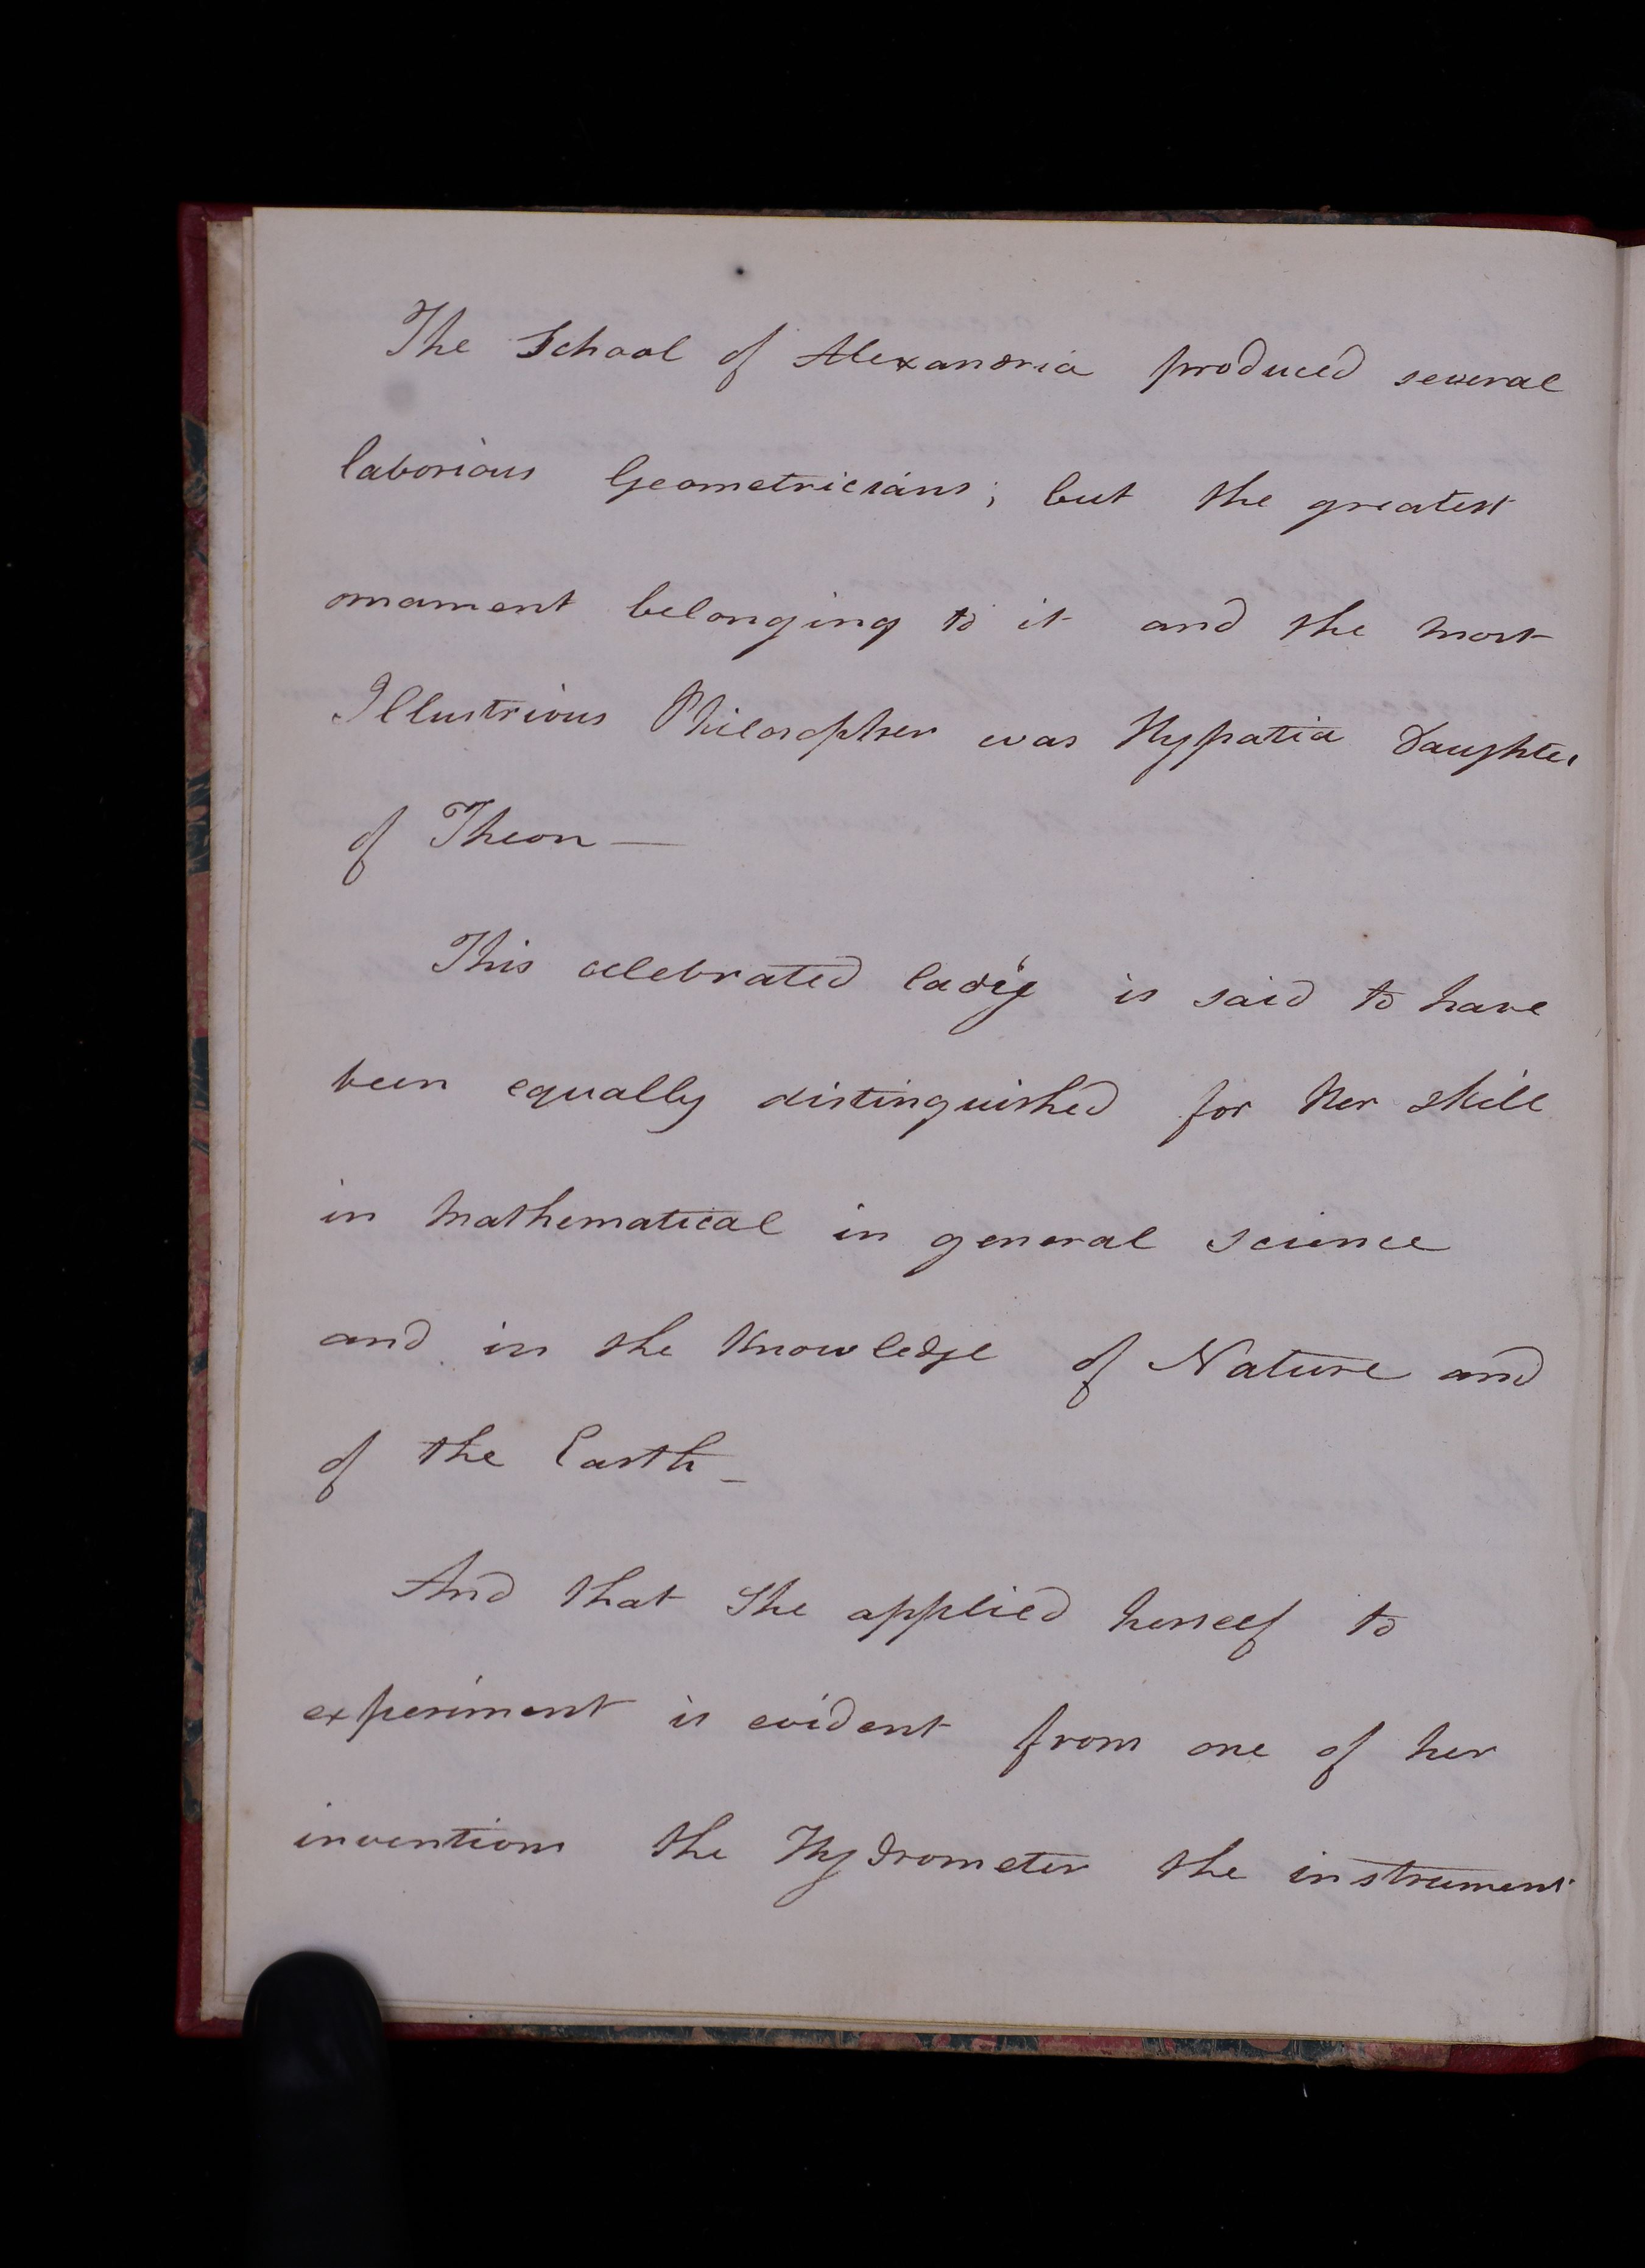 The School of Alexandria produced several
laborious Geometricians; but the greatest
ornament belonging to it and the most
Illustrious Philosopher was Hypatia Daughter
of Theon —
This celebrated lady is said to have
been equally distinguished for her skill
in mathematical in general science
and in the knowledge of Nature and
of the Earth _
And that She applied herself to
experiment is evident from one of her
inventions the Hydrometer the instrument